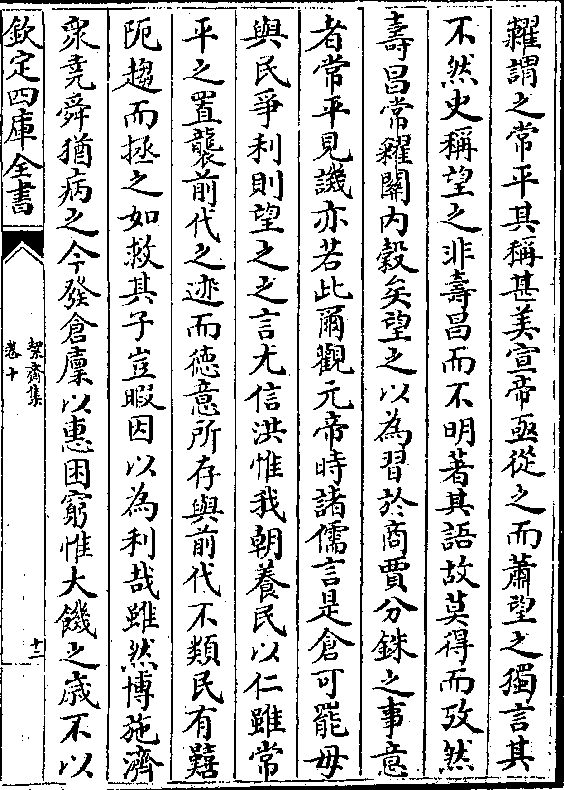 糴謂之常平其稱甚美宣帝亟從之而蕭望之獨言其
不然史稱望之非壽昌而不明著其語故莫得而攷然
壽昌常糴關内穀矣望之以為習於商賈分銖之事意
者常平見譏亦若此爾觀元帝時諸儒言是倉可罷毋
與民爭利則望之之言尤信洪惟我朝養民以仁雖常
平之置襲前代之迹而徳意所存與前代不類民有囏
阨趨而拯之如救其子豈暇因以為利哉雖然博施濟
衆堯舜猶病之今發倉廩以惠困窮惟大饑之歳不以
欽定四庫全書
絜齋集
卷十
十二